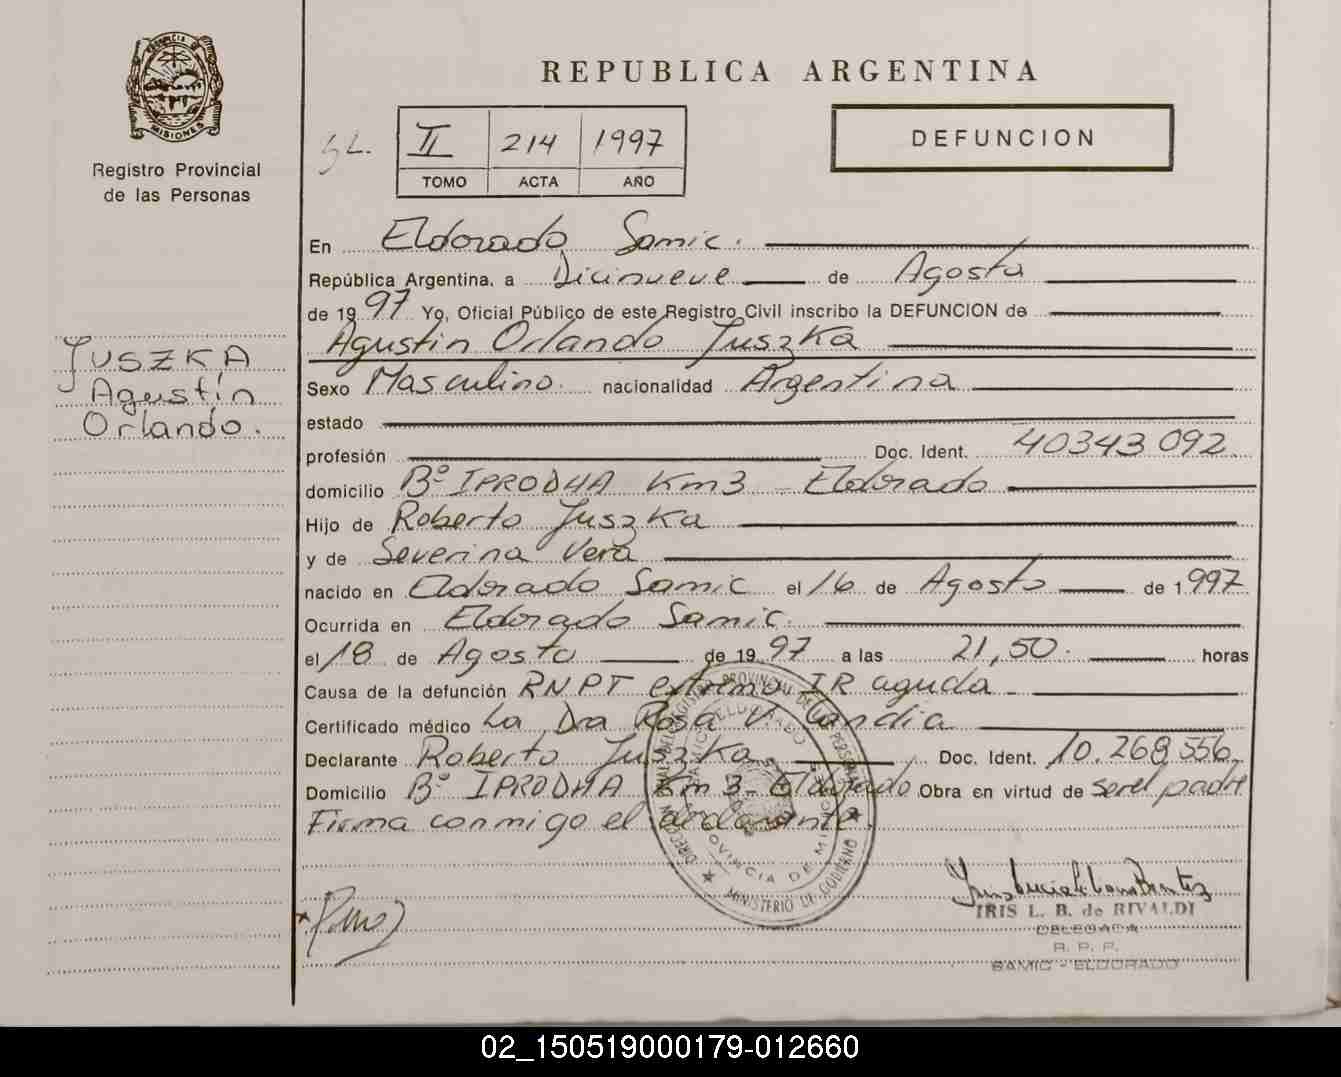 PROVINCIA DE
MISIONES
Registro Provincial
de las Personas
JUSZKA
Agustín
Orlando.
REPUBLICA ARGENTINA
DEFUNCION
II 214 1997
TOMO ACTA AÑO
En Eldorado Samic.
República Argentina, a Dicinueve de Agosto
de 1997 Yo, Oficial Público de este Registro Civil inscribo la DEFUNCION de
Agustin Orlando Juszka
Sexo Masculino. nacionalidad Argentina
estado
profesión Doc. Ident. 40343092
domicilio Bº IPRODHA Km3 - Eldorado
Hijo de Roberto Juszka
y de Severina Vera
nacido en Eldorado Samic el 16 de Agosto de 1997
Ocurrida en Eldorado Samic.
el 18 de Agosto de 1997 a las 21,50. horas
Causa de la defunción RNPT extremo IR aguda
Certificado médico La Dra Rosa V. Candia
Declarante Roberto Juszka Doc. Ident. 10.268.556
Domicilio Bº IPRODHA Km 3 - Eldorado Obra en virtud de ser el padre
Firma conmigo el declarante.
REGISTRO PROVINCIAL DE LAS PERSONAS
ELDORADO
PROVINCIA DE MISIONES
MINISTERIO DE GOBIERNO
IRIS L. B. de RIVALDI
DELEGADA
R. P. P.
SAMIC - ELDORADO
02_150519000179-012660